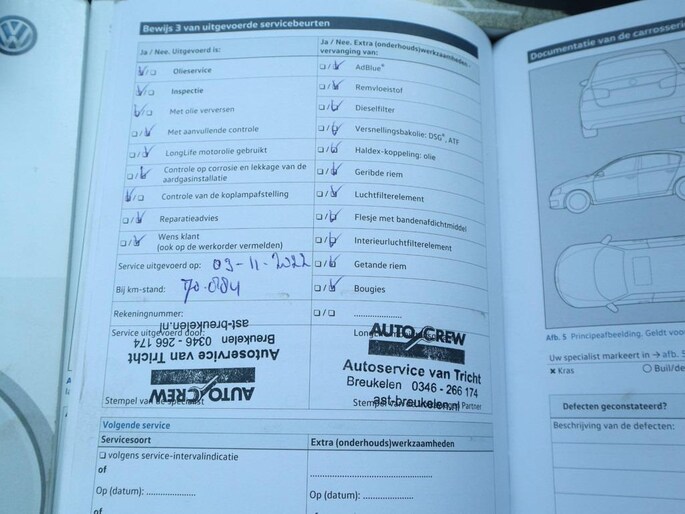 Bewijs 3 van uitgevoerde servicebeurten
Ja / Nee. Uitgevoerd is:
Olieservice
Inspectie
Met olie verversen
Met aanvullende controle
LongLife motorolie gebruikt
Controle op corrosie en lekkage van de
aardgasinstallatie
Controle van de koplampafstelling
Reparatieadvies
Wens klant
(ook op de werkorder vermelden)
Service uitgevoerd op: 03-11-2022
Bij km-stand: 70.884
Rekeningnummer:
Service uitgevoerd door:
AUTO CREW
Autoservice van Tricht
Breukelen 0346 - 266 174
ast-breukelen.nl
Stempel van de specialist
Ja / Nee. Extra (onderhouds)werkzaamheden -
vervanging van:
AdBlue®
Remvloeistof
Dieselfilter
Versnellingsbakolie: DSG®, ATF
Haldex-koppeling: olie
Geribde riem
Luchtfilterelement
Flesje met bandenafdichtmiddel
Interieurluchtfilterelement
Getande riem
Bougies
AUTO CREW
Autoservice van Tricht
Breukelen 0346 - 266 174
ast-breukelen.nl
Stempel van Partner
Volgende service
Servicesoort
volgens service-intervalindicatie
of
Op (datum): ................
of
Extra (onderhouds)werkzaamheden
Op (datum): ................
Documentatie van de carrosserie
Afb. 5 Principeafbeelding. Geldt voor
Uw specialist markeert in → afb. 5
× Kras
Buil/de
Defecten geconstateerd?
Beschrijving van de defecten: